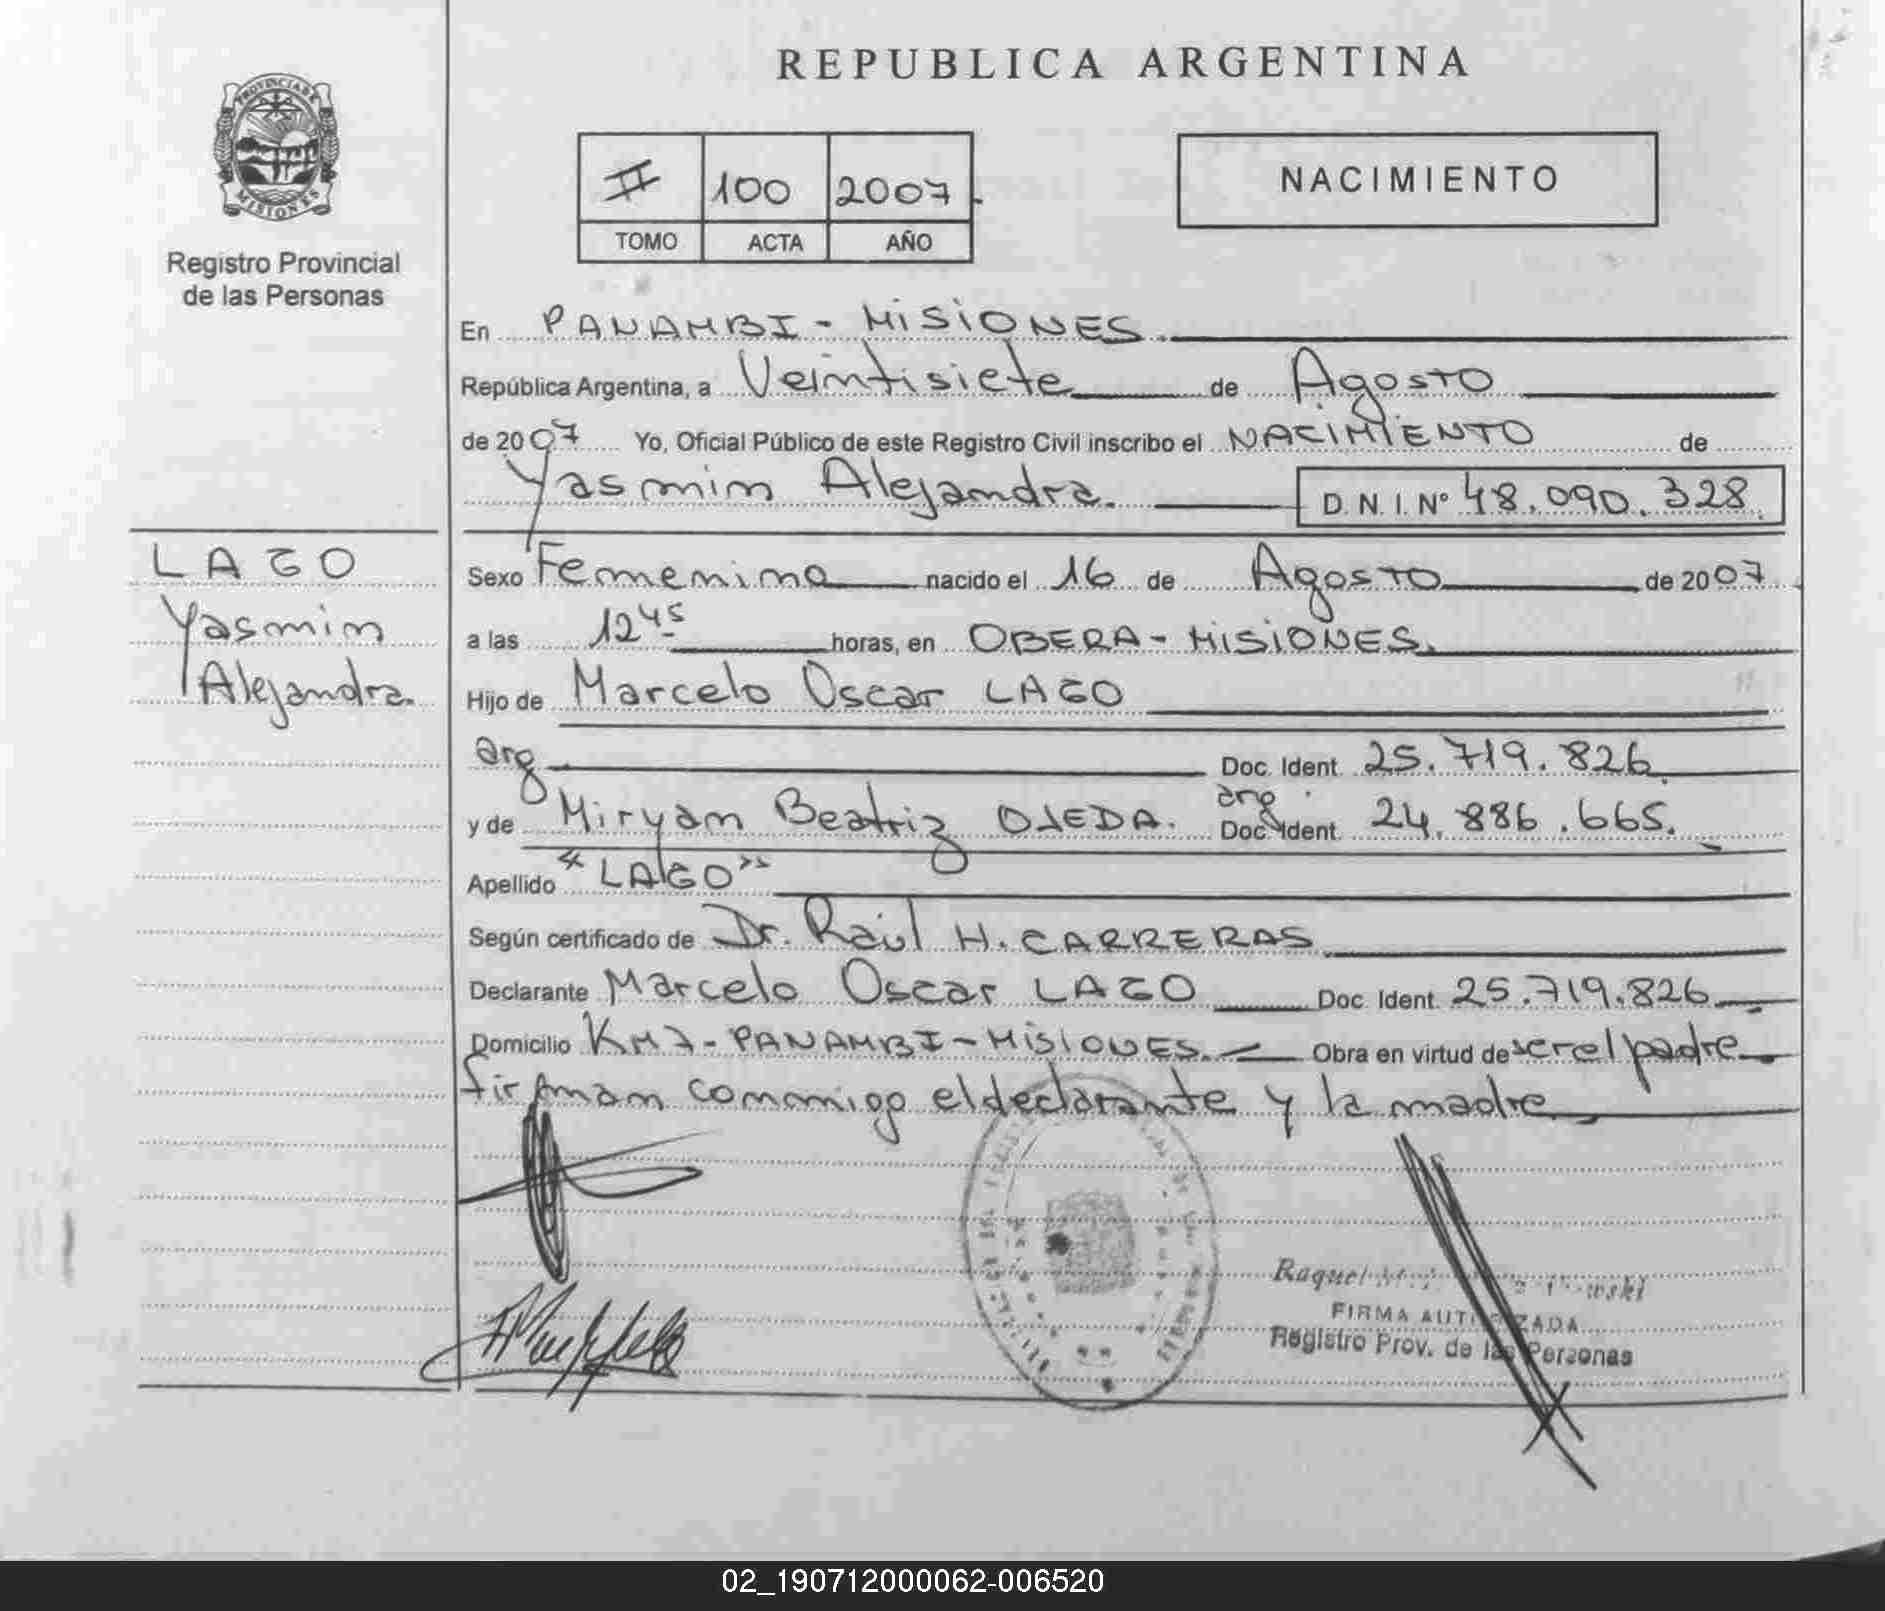 REPUBLICA ARGENTINA
PROVINCIA DE
MISIONES
Registro Provincial
de las Personas
II 100 2007
TOMO ACTA AÑO
NACIMIENTO
En PANAMBI - MISIONES
República Argentina, a Veintisiete de Agosto
de 2007 Yo, Oficial Público de este Registro Civil inscribo el NACIMIENTO de
Yasmin Alejandra. D. N. I. Nº 48.090.328
LAGO
Yasmin
Alejandra.
Sexo Femenino nacido el 16 de Agosto de 2007
a las 12 45 horas, en OBERA - MISIONES.
Hijo de Marcelo Oscar LAGO
arg Doc. Ident. 25.719.826
y de Miryam Beatriz OJEDA. arg Doc. Ident. 24.886.665.
Apellido "LAGO"
Según certificado de Dr. Raúl H. CARRERAS
Declarante Marcelo Oscar LAGO Doc. Ident. 25.719.826
Domicilio KM 7 - PANAMBI - MISIONES. Obra en virtud de ser el padre
firman conmigo el declarante y la madre
Raquel
FIRMA AUTORIZADA
Registro Prov. de las Personas
02_190712000062-006520